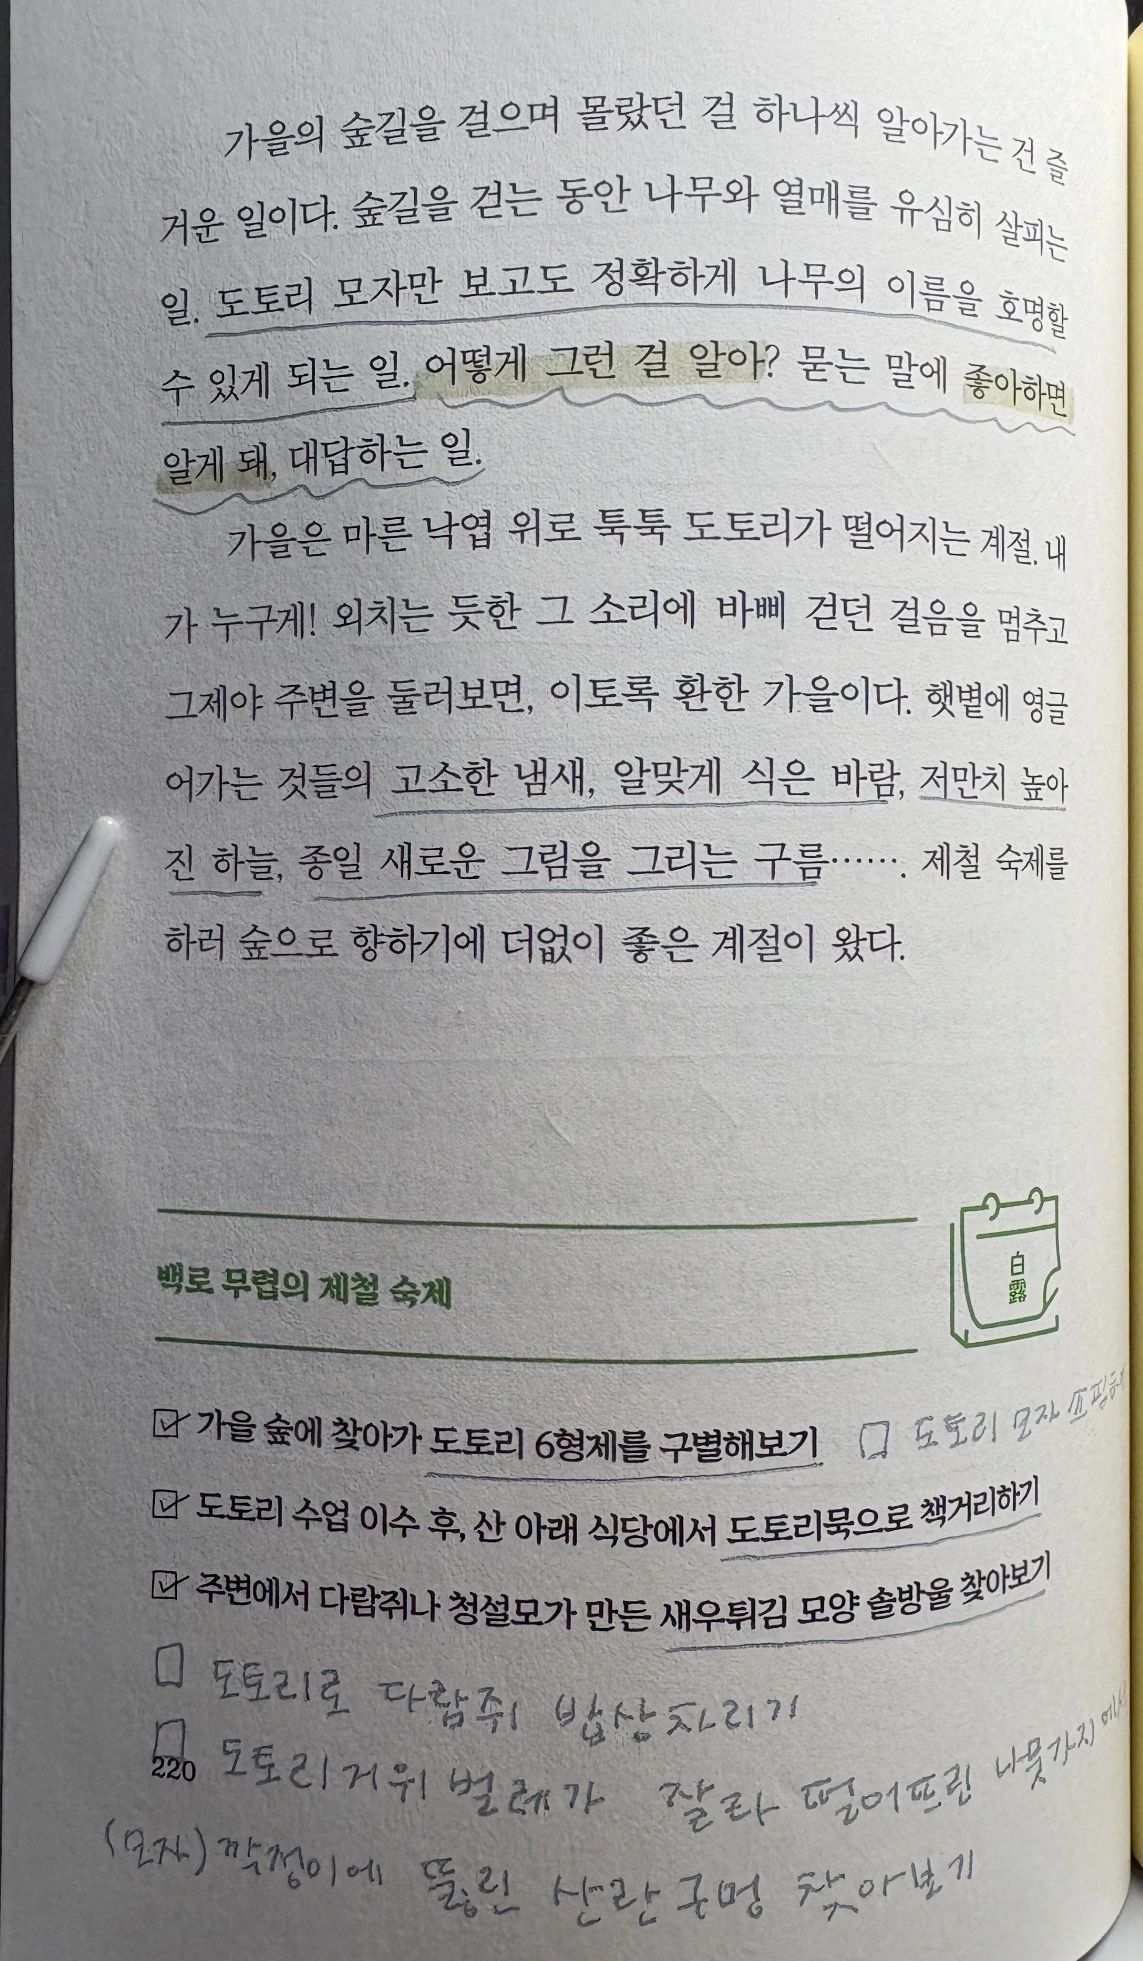 가을의 숲길을 걸으며 몰랐던 걸 하나씩 알아가는 건 즐
거운 일이다. 숲길을 걷는 동안 나무와 열매를 유심히 살피는
일. 도토리 모자만 보고도 정확하게 나무의 이름을 호명할
수 있게 되는 일. 어떻게 그런 걸 알아? 묻는 말에 좋아하면
알게 돼, 대답하는 일.
가을은 마른 낙엽 위로 툭툭 도토리가 떨어지는 계절. 내
가 누구게! 외치는 듯한 그 소리에 바삐 걷던 걸음을 멈추고
그제야 주변을 둘러보면, 이토록 환한 가을이다. 햇볕에 영글
어가는 것들의 고소한 냄새, 알맞게 식은 바람, 저만치 높아
진 하늘, 종일 새로운 그림을 그리는 구름……. 제철 숙제를
하러 숲으로 향하기에 더없이 좋은 계절이 왔다.
백로 무렵의 제철 숙제
白
露
가을 숲에 찾아가 도토리 6형제를 구별해보기
도토리 모자
도토리 수업 이수 후, 산 아래 식당에서 도토리묵으로 책거리하기
주변에서 다람쥐나 청설모가 만든 새우튀김 모양 솔방울 찾아보기
도토리로 다람쥐 밥상 차리기
도토리거위벌레가 잘라 떨어뜨린 나뭇가지에서
220
(모자) 깍정이에 뚫린 산란구멍 찾아보기